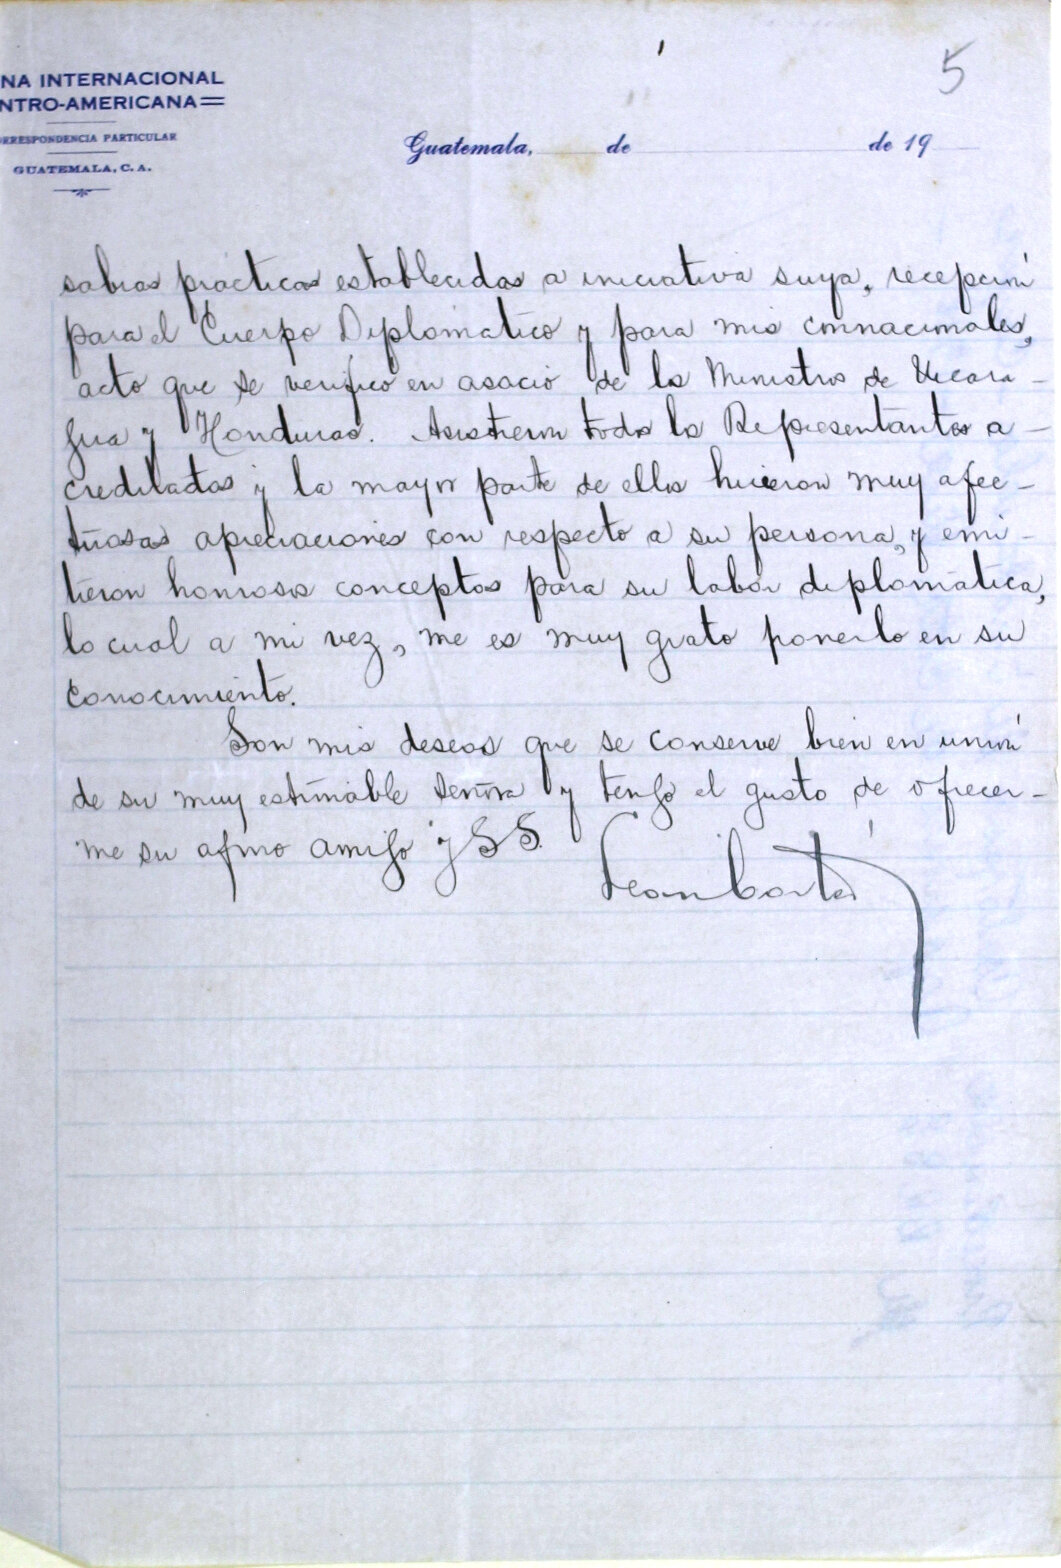 5
NA INTERNACIONAL
NTRO-AMERICANA
ORRESPONDENCIA PARTICULAR
GUATEMALA, C. A.
Guatemala, de de 19
sabias prácticas establecidas a iniciativa suya, recepción
para el Cuerpo Diplomático y para mis connacionales,
acto que se verificó en asocio de los Ministros de Nicara-
gua y Honduras. Asistieron todos los Representantes a-
creditados y la mayor parte de ellos hicieron muy afec-
tuosas apreciaciones con respecto a su persona, y emi-
tieron honrosos conceptos para su labor diplomática,
lo cual a mi vez, me es muy grato ponerlo en su
conocimiento.
Son mis deseos que se conserve bien en unión
de su muy estimable Señora y tengo el gusto de ofrecer-
me su afmo amigo y S S.
León Cortés